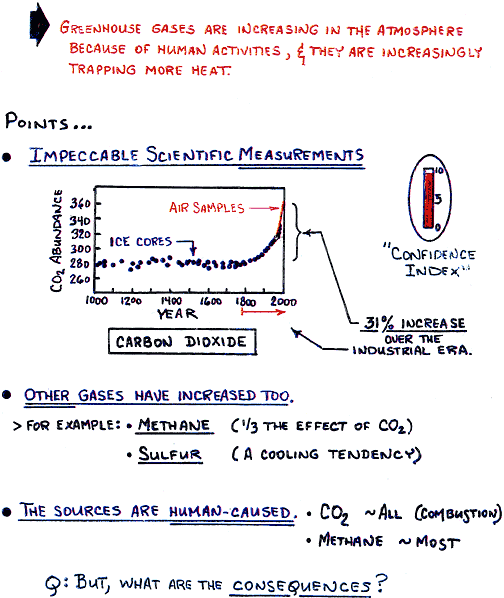 GREENHOUSE GASES ARE INCREASING IN THE ATMOSPHERE
BECAUSE OF HUMAN ACTIVITIES, & THEY ARE INCREASINGLY
TRAPPING MORE HEAT.
POINTS...
• IMPECCABLE SCIENTIFIC MEASUREMENTS
CO2 ABUNDANCE
360
340
320
300
280
260
AIR SAMPLES
ICE CORES
1000 1200 1400 1600 1800 2000
YEAR
CARBON DIOXIDE
10
5
0
"CONFIDENCE
INDEX"
31% INCREASE
OVER THE
INDUSTRIAL ERA.
• OTHER GASES HAVE INCREASED TOO.
> FOR EXAMPLE: • METHANE (1/3 THE EFFECT OF CO2)
• SULFUR (A COOLING TENDENCY)
• THE SOURCES ARE HUMAN-CAUSED. • CO2 ~ALL (COMBUSTION)
• METHANE ~MOST
Q: BUT, WHAT ARE THE CONSEQUENCES?